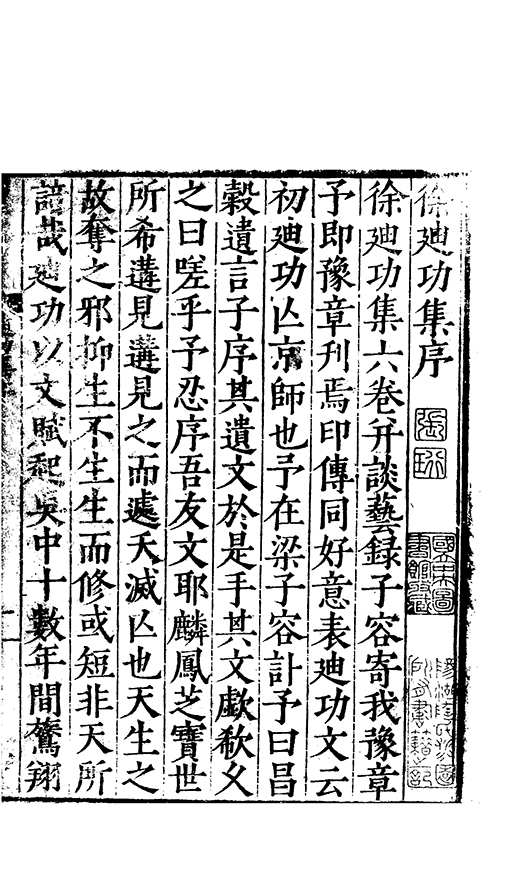 徐廸功集序
徐廸功集六卷并談藝録子容寄我豫章
予即豫章刋焉印傳同好意表廸功文云
初廸功亾京師也予在梁子容計予曰昌
穀遺言子序其遺文於是手其文歔欷久
之曰嗟乎予忍序吾友文耶麟鳳芝寶世
所希遘見遘見之而遽夭滅亾也天生之
故奪之邪抑生不生生而修或短非天所
諳哉廸功以文賦起吳中十數年間鶱翔